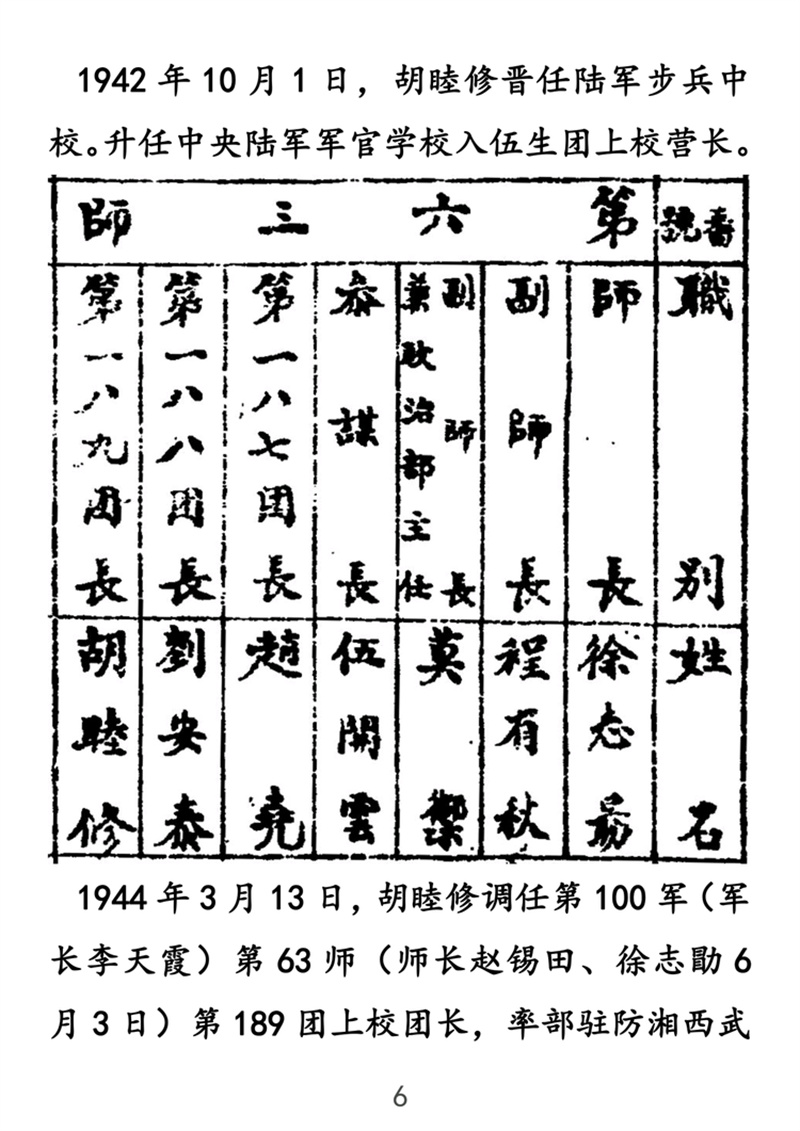 1942 年 10 月 1 日，胡睦修晋任陆军步兵中
校。升任中央陆军军官学校入伍生团上校营长。
番號
第六三師
職別
師長
副師長
副師長
兼政治部主任
参謀長
第一八七团長
第一八八团長
第一八九团長
姓名
徐志勗
程有秋
莫禦
伍開雲
趙堯
劉安泰
胡睦修
1944 年 3 月 13 日，胡睦修调任第 100 军（军
长李天霞）第 63 师（师长赵锡田、徐志勖 6
月 3 日）第 189 团上校团长，率部驻防湘西武
6